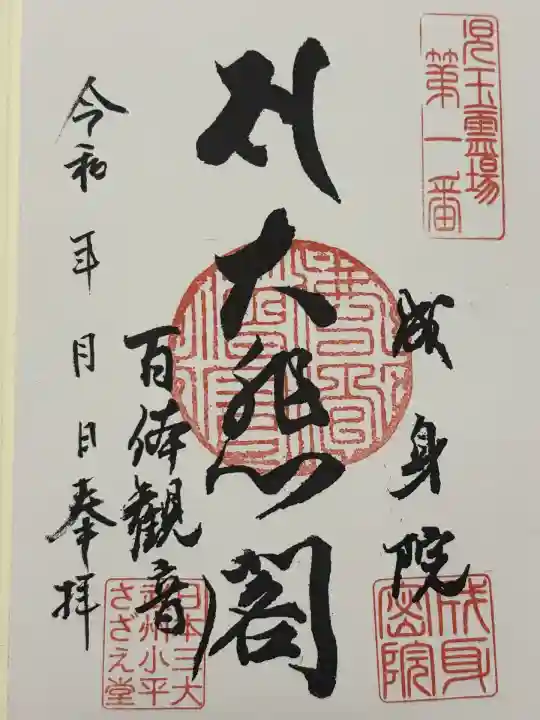 児玉霊場
第一番
成身院
大悲閣
百体観音
令和 年 月 日奉拝
成身
密院
日本三大
武州小平
さざえ堂